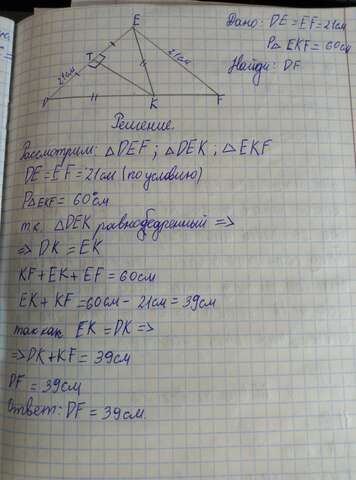 Дано: DE = EF = 21см
P△ EKF = 60см
Найди: DF
E
T
21см
21см
D
K
F
Решение.
Рассмотрим: △DEF; △DEK, △EKF
DE = EF = 21см (по условию)
P△EKF = 60см
т.к. △DEK равнобедренный =>
=> DK = EK
KF + EK + EF = 60см
EK + KF = 60см - 21см = 39см
так как EK = DK =>
=> DK + KF = 39см
DF = 39см
Ответ: DF = 39см.